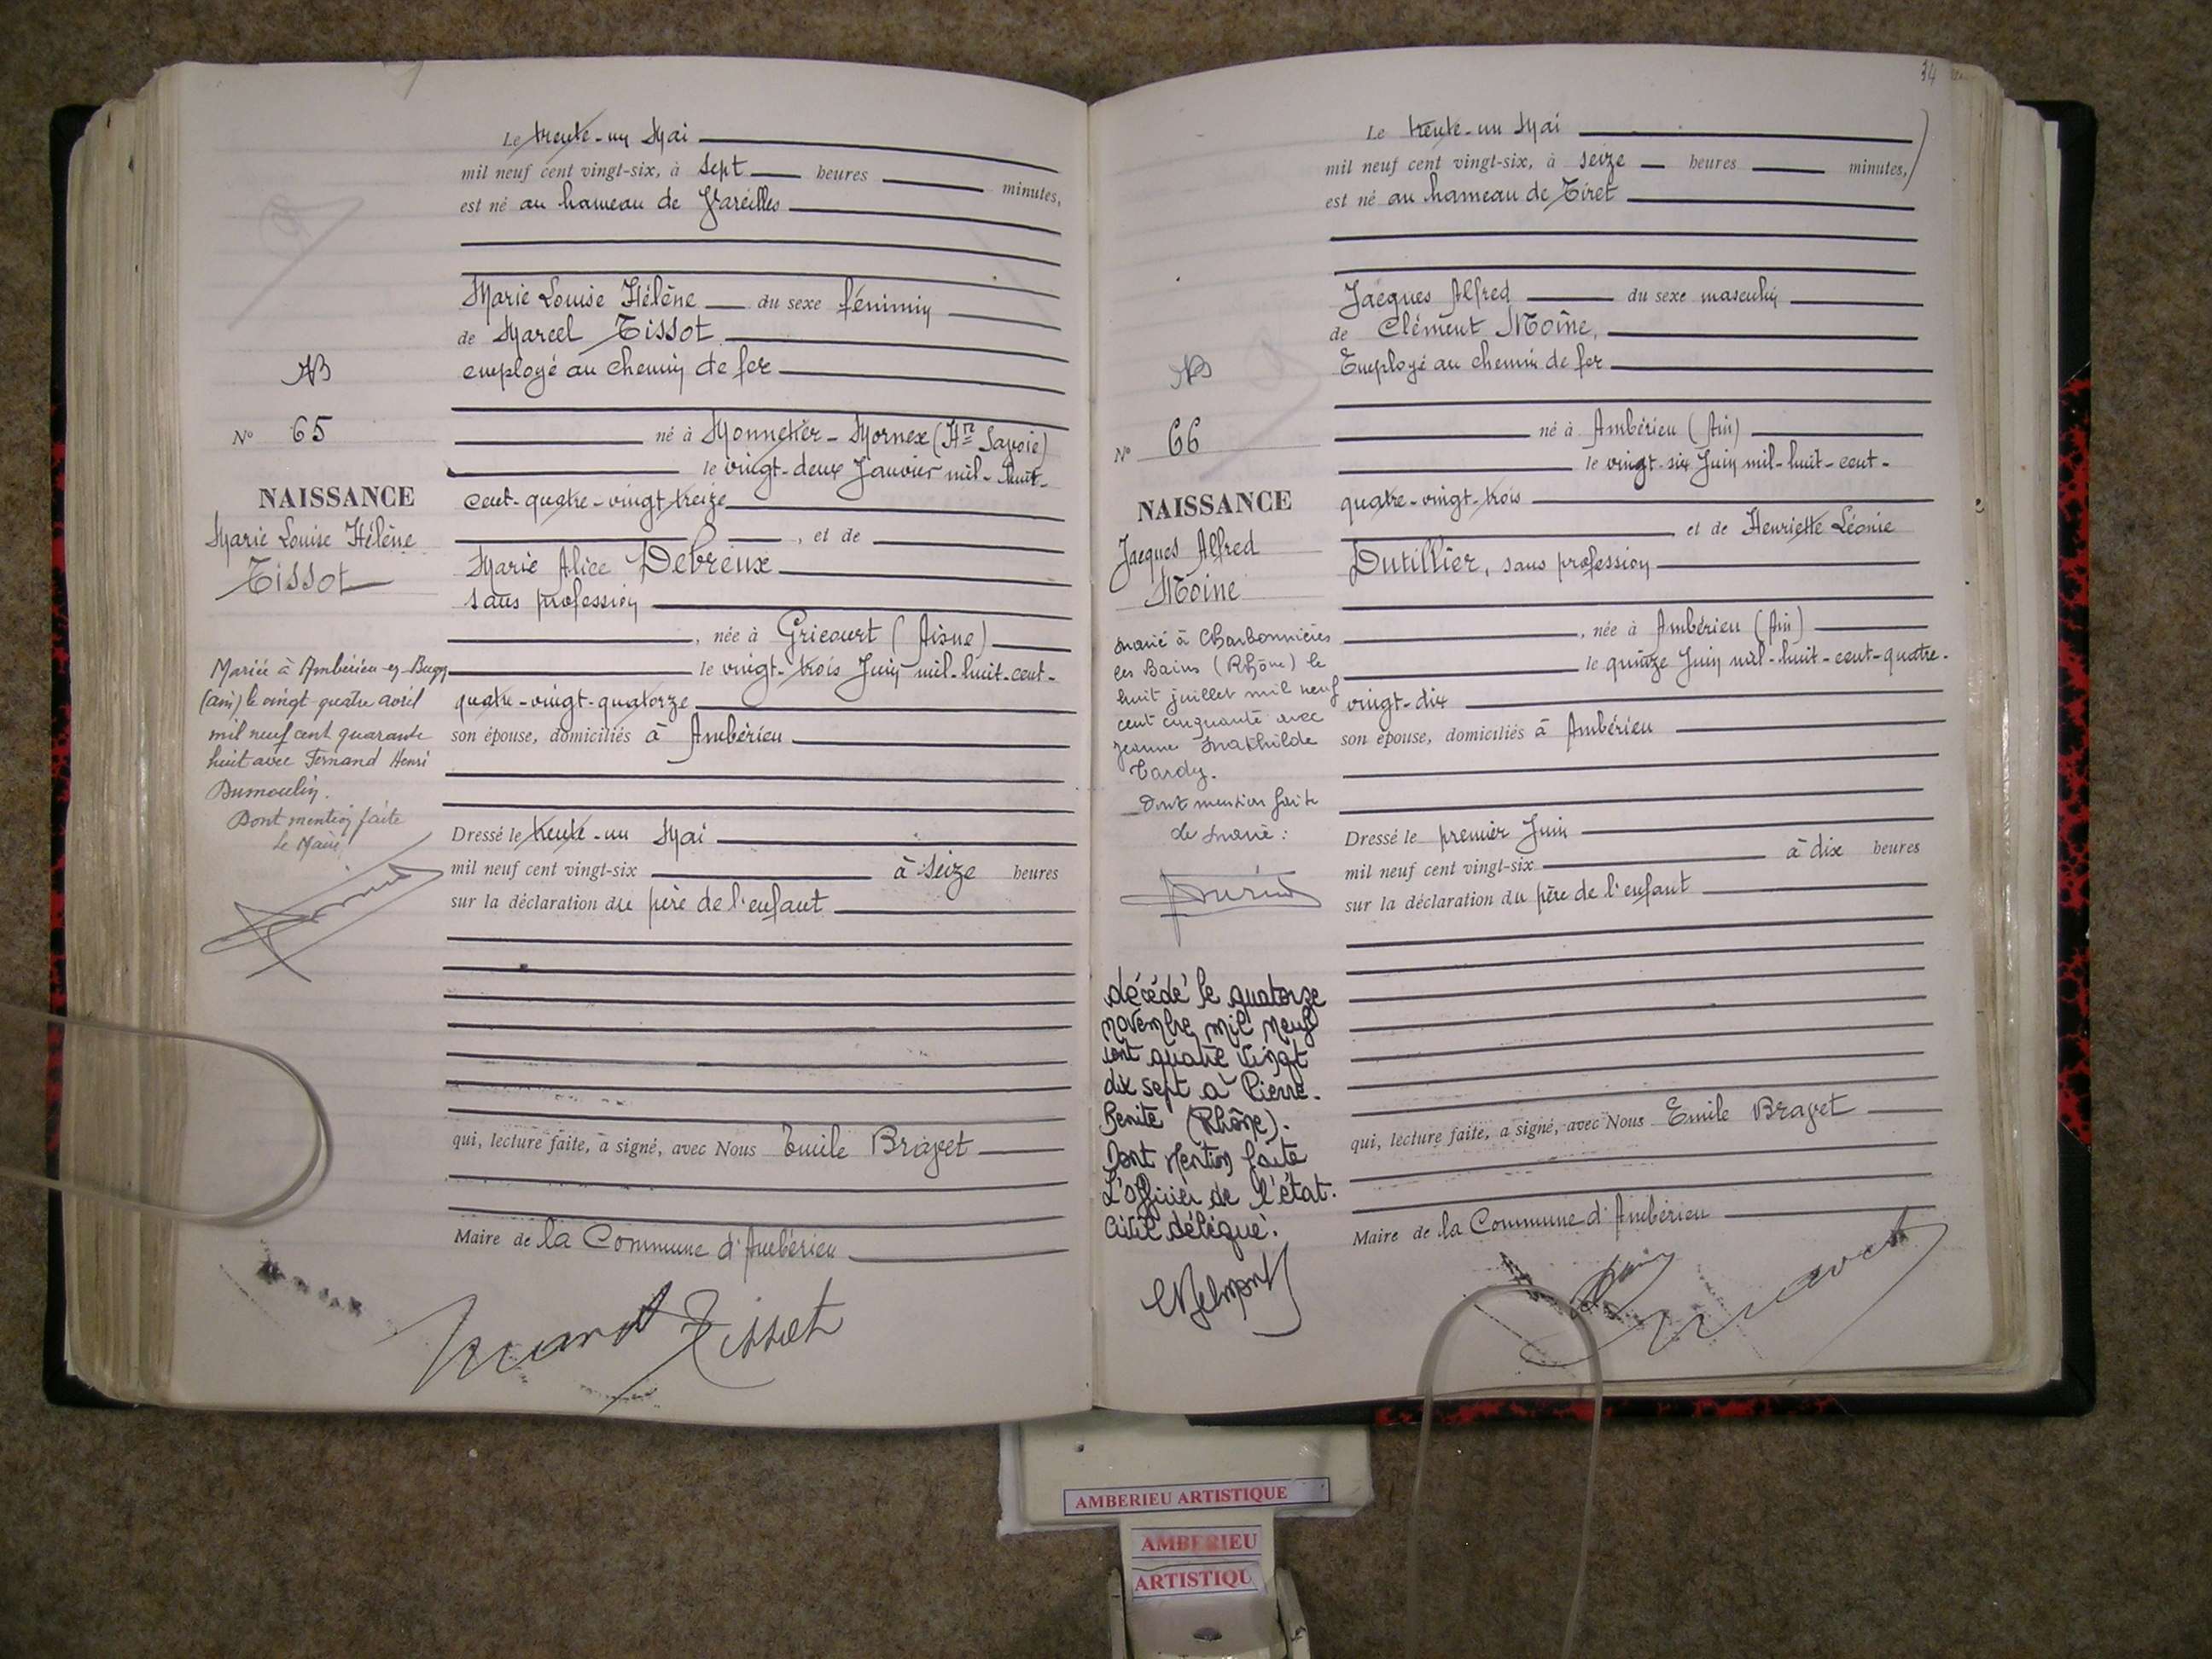 Le trente-un Mai
mil neuf cent vingt-six, à sept heures minutes,
est né au hameau de Vareilles
Marie Louise Hélène du sexe féminin
de Marcel Tissot
employé au chemin de fer
né à Monnetier-Mornex (Hte Savoie)
le vingt-deux Janvier mil-huit-
cent-quatre-vingt-treize
, et de
Marie Alice Debreux
sans profession
, née à Gricourt (Aisne)
le vingt-trois Juin mil-huit-cent-
quatre-vingt-quatorze
son épouse, domiciliés à Ambérieu
Dressé le trente-un Mai
mil neuf cent vingt-six à seize heures
sur la déclaration du père de l'enfant
qui, lecture faite, a signé, avec Nous Emile Bravet
Maire de la Commune d'Ambérieu
Tissot
AB
N° 65
NAISSANCE
Marie Louise Hélène
Tissot
Mariée à Ambérieu-en-Bugey
(Ain) le vingt-quatre avril
mil neuf cent quarante
huit avec Fernand Henri
Dumoulin.
Dont mention faite
Le Maire
34
Le trente-un Mai
mil neuf cent vingt-six, à seize heures minutes,
est né au hameau de Tiret
Jacques Alfred du sexe masculin
de Clément Moine,
Employé au chemin de fer
né à Ambérieu (Ain)
le vingt-six Juin mil-huit-cent-
quatre-vingt-trois
et de Henriette Léonie
Dutillier, sans profession
, née à Ambérieu (Ain)
le quinze Juin mil-huit-cent-quatre-
vingt-dix
son épouse, domiciliés à Ambérieu
Dressé le premier Juin
mil neuf cent vingt-six à dix heures
sur la déclaration du père de l'enfant
qui, lecture faite, a signé, avec Nous Emile Bravet
Maire de la Commune d'Ambérieu
Bravet
N° 66
NAISSANCE
Jacques Alfred
Moine
Marié à Charbonnières
les Bains (Rhône) le
huit juillet mil neuf
cent cinquante avec
Jeanne Mathilde
Tardy.
Dont mention faite
décédé le quatorze
novembre mil neuf
cent quatre vingt
dix sept à Pierre-
Benite (Rhône).
Dont Mention faite
L'officier de l'état-
civil délégué.
AMBERIEU ARTISTIQUE
AMBERIEU
ARTISTIQU